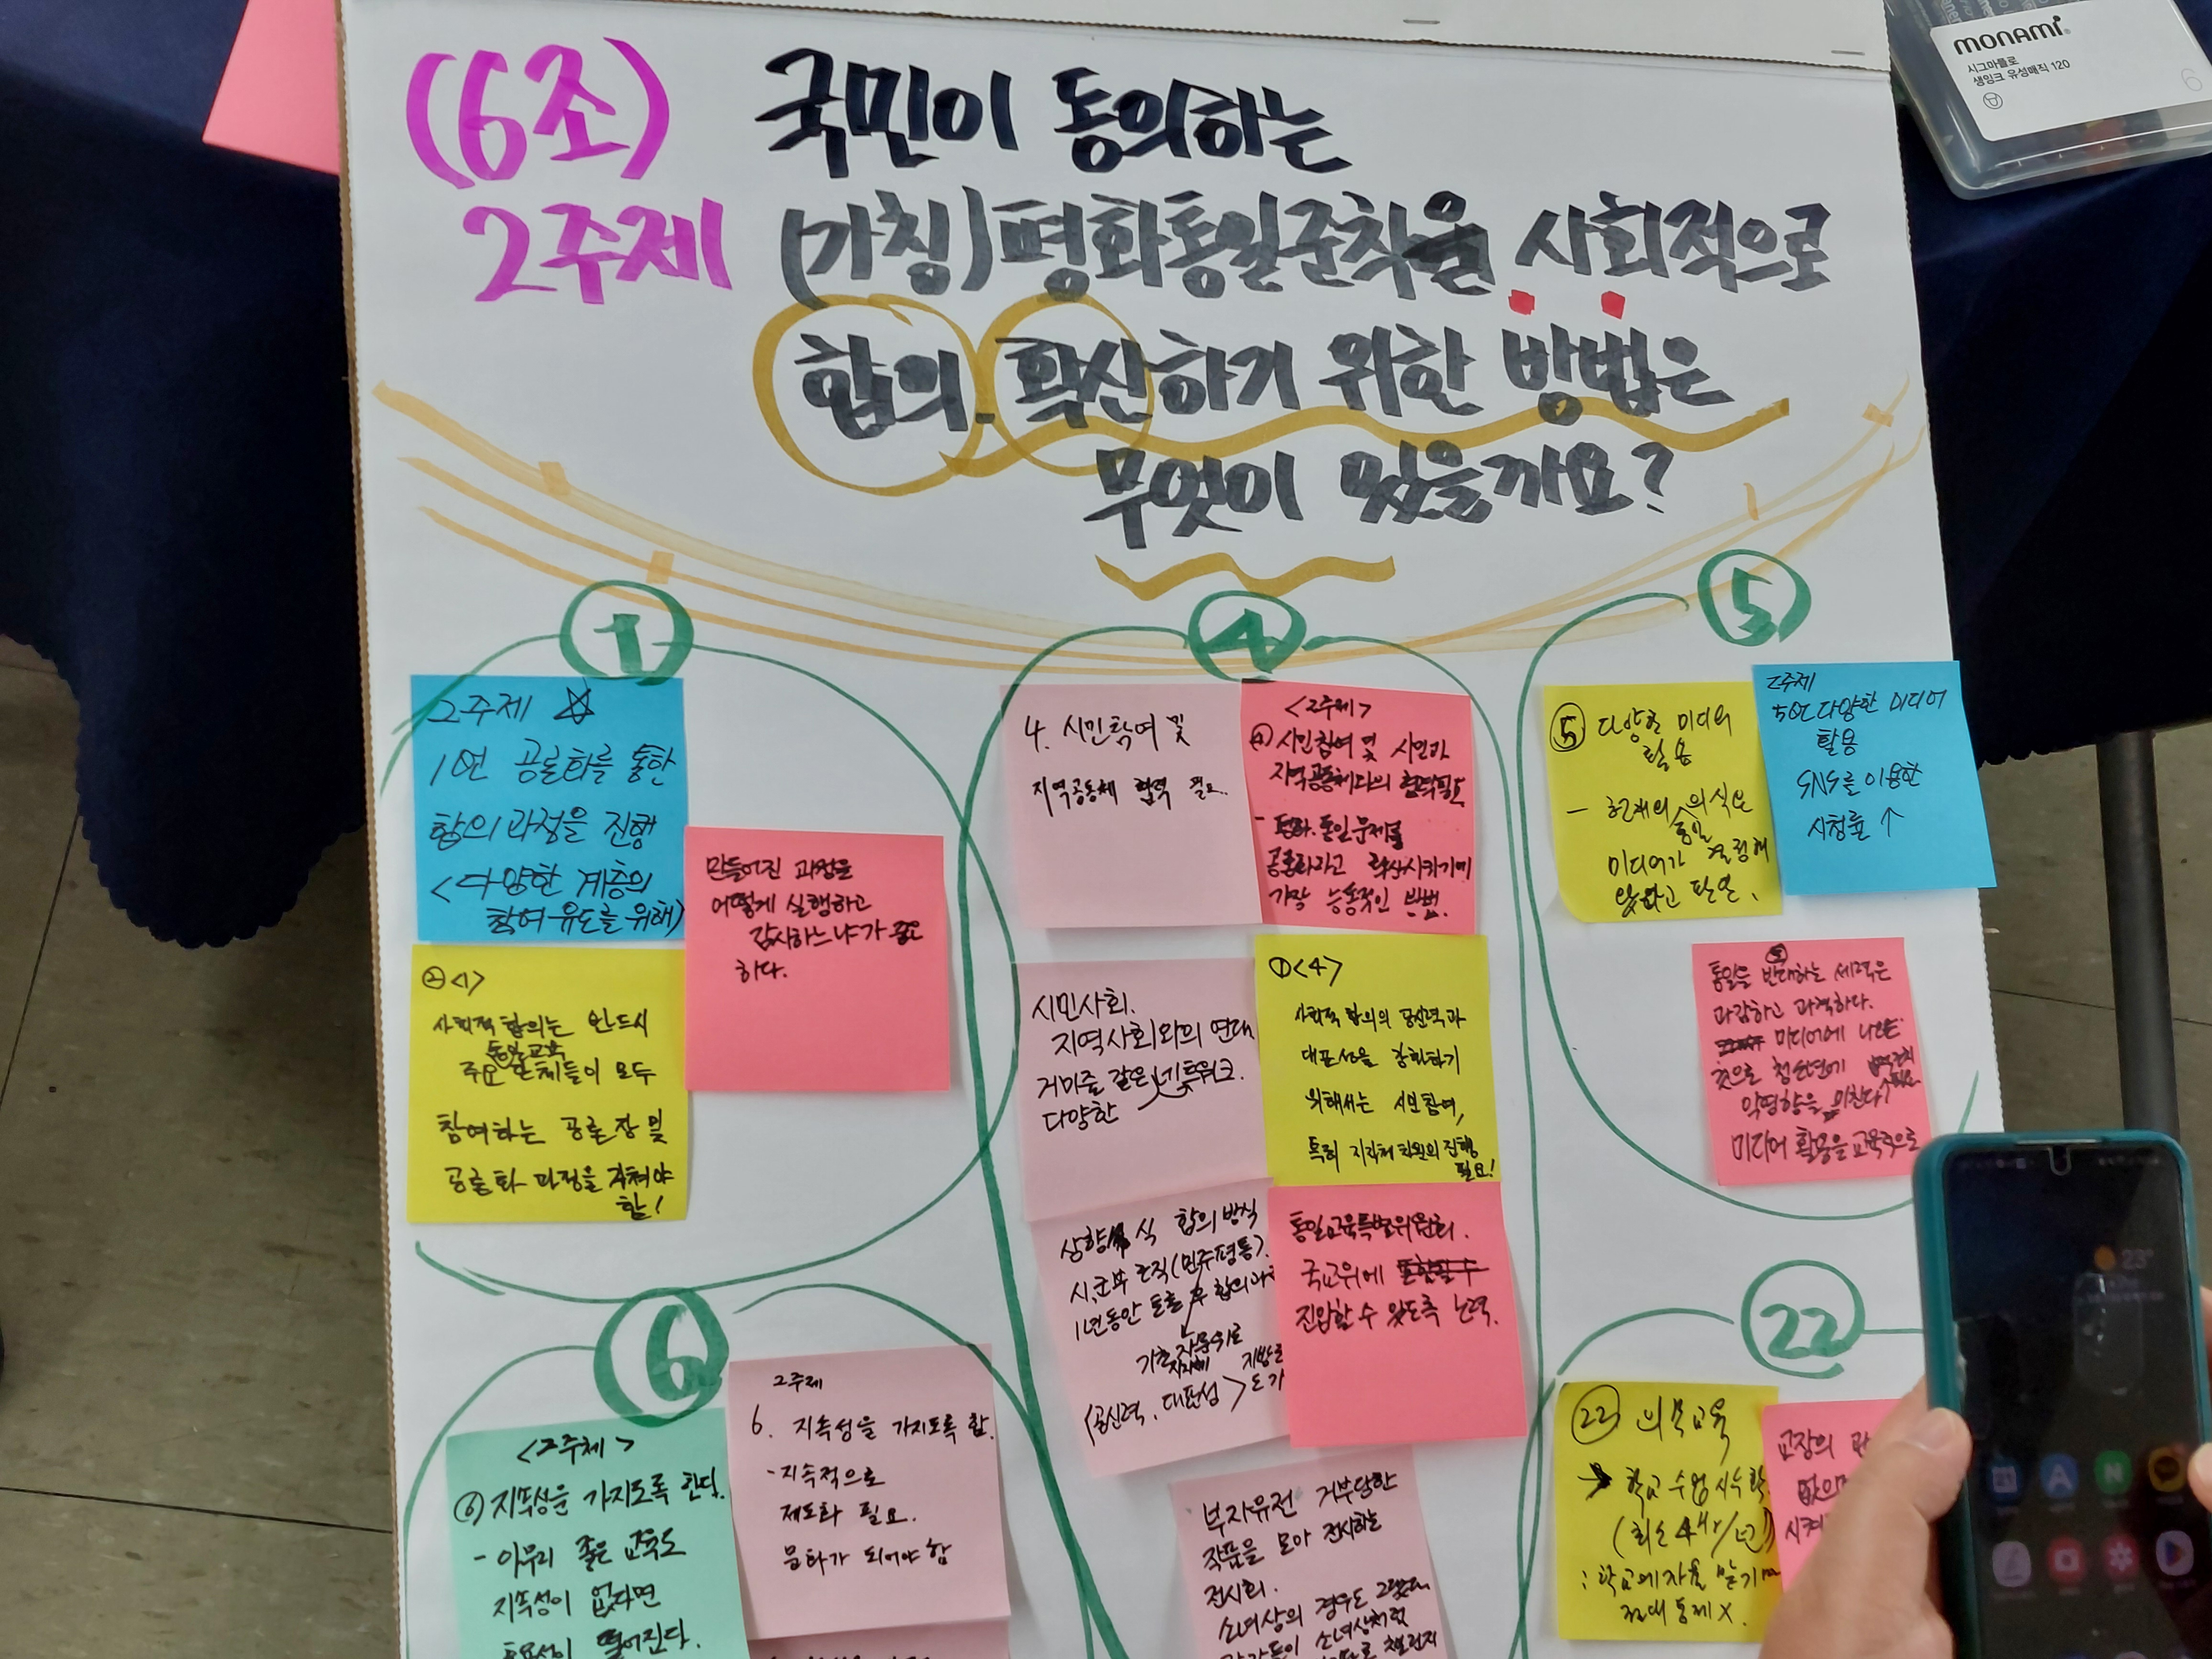 (6조)
2주제
국민이 동의하는
(가칭)평화통일준칙을 사회적으로
합의. 확산하기 위한 방법은
무엇이 있을까요?
monami
시그마플로
생잉크 유성매직 120
6
1
2주제
1연 공론화를 통한
합의과정을 진행
<다양한 계층의
참여 유도를 위해)
만들어진 과정을
어떻게 실행하고
감시하느냐가 중요
하다.
② <1>
사회적 합의는 반드시
통일교육
주요 단체들이 모두
참여하는 공론장 및
공론화 과정을 거쳐야
함!
4
4. 시민참여 및
지역공동체 협력 필요.
<2주제>
④ 시민참여 및 시민과
지역공동체와의 협력필요
- 평화.통일문제를
공론화하고 확산시키기에
가장 능동적인 방법.
시민사회.
지역사회와의 연대
거미줄 같은 네트워크.
다양한
① <4>
사회적 합의의 공신력과
대표성을 강화하기
위해서는 시민참여,
특히 지자체 차원의 진행
필요!
상향식 합의 방식
시,군부 조직(민주평통).
1년동안 토출 후 합의
기초
지자체
(공신력, 대표성>
통일교육특별위원회.
국교위에
진입할 수 있도록 노력.
부자유전 거부당한
작품을 모아 전시하는
전시회.
소녀상의 경우도 그렇고
소녀상처럼
챌린지
5
⑤ 다양한 미디어
활용
- 현재의 통일 의식은
미디어가 결정해
않다고 판단.
2주제
5연 다양한 미디어
활용
SNS를 이용한
시청률 ↑
통일을 반대하는 세력은
과감하고 과격하다.
미디어에 나오는
것으로 청소년에
악영향을 미친다
미디어 활용을 교육적으로
22
㉒ 의무교육
→ 학교 수업 시수 확
(최소 4hr/년)
: 학교에 자율 맡기면
절대 통제 X.
교장의
없으면
시켜
6
<2주제>
⑥ 지속성을 가지도록 한다.
- 아무리 좋은 교육도
지속성이 없다면
효율성이 떨어진다.
2주제
6. 지속성을 가지도록 함.
- 지속적으로
제도화 필요.
문화가 되어야 함
23°